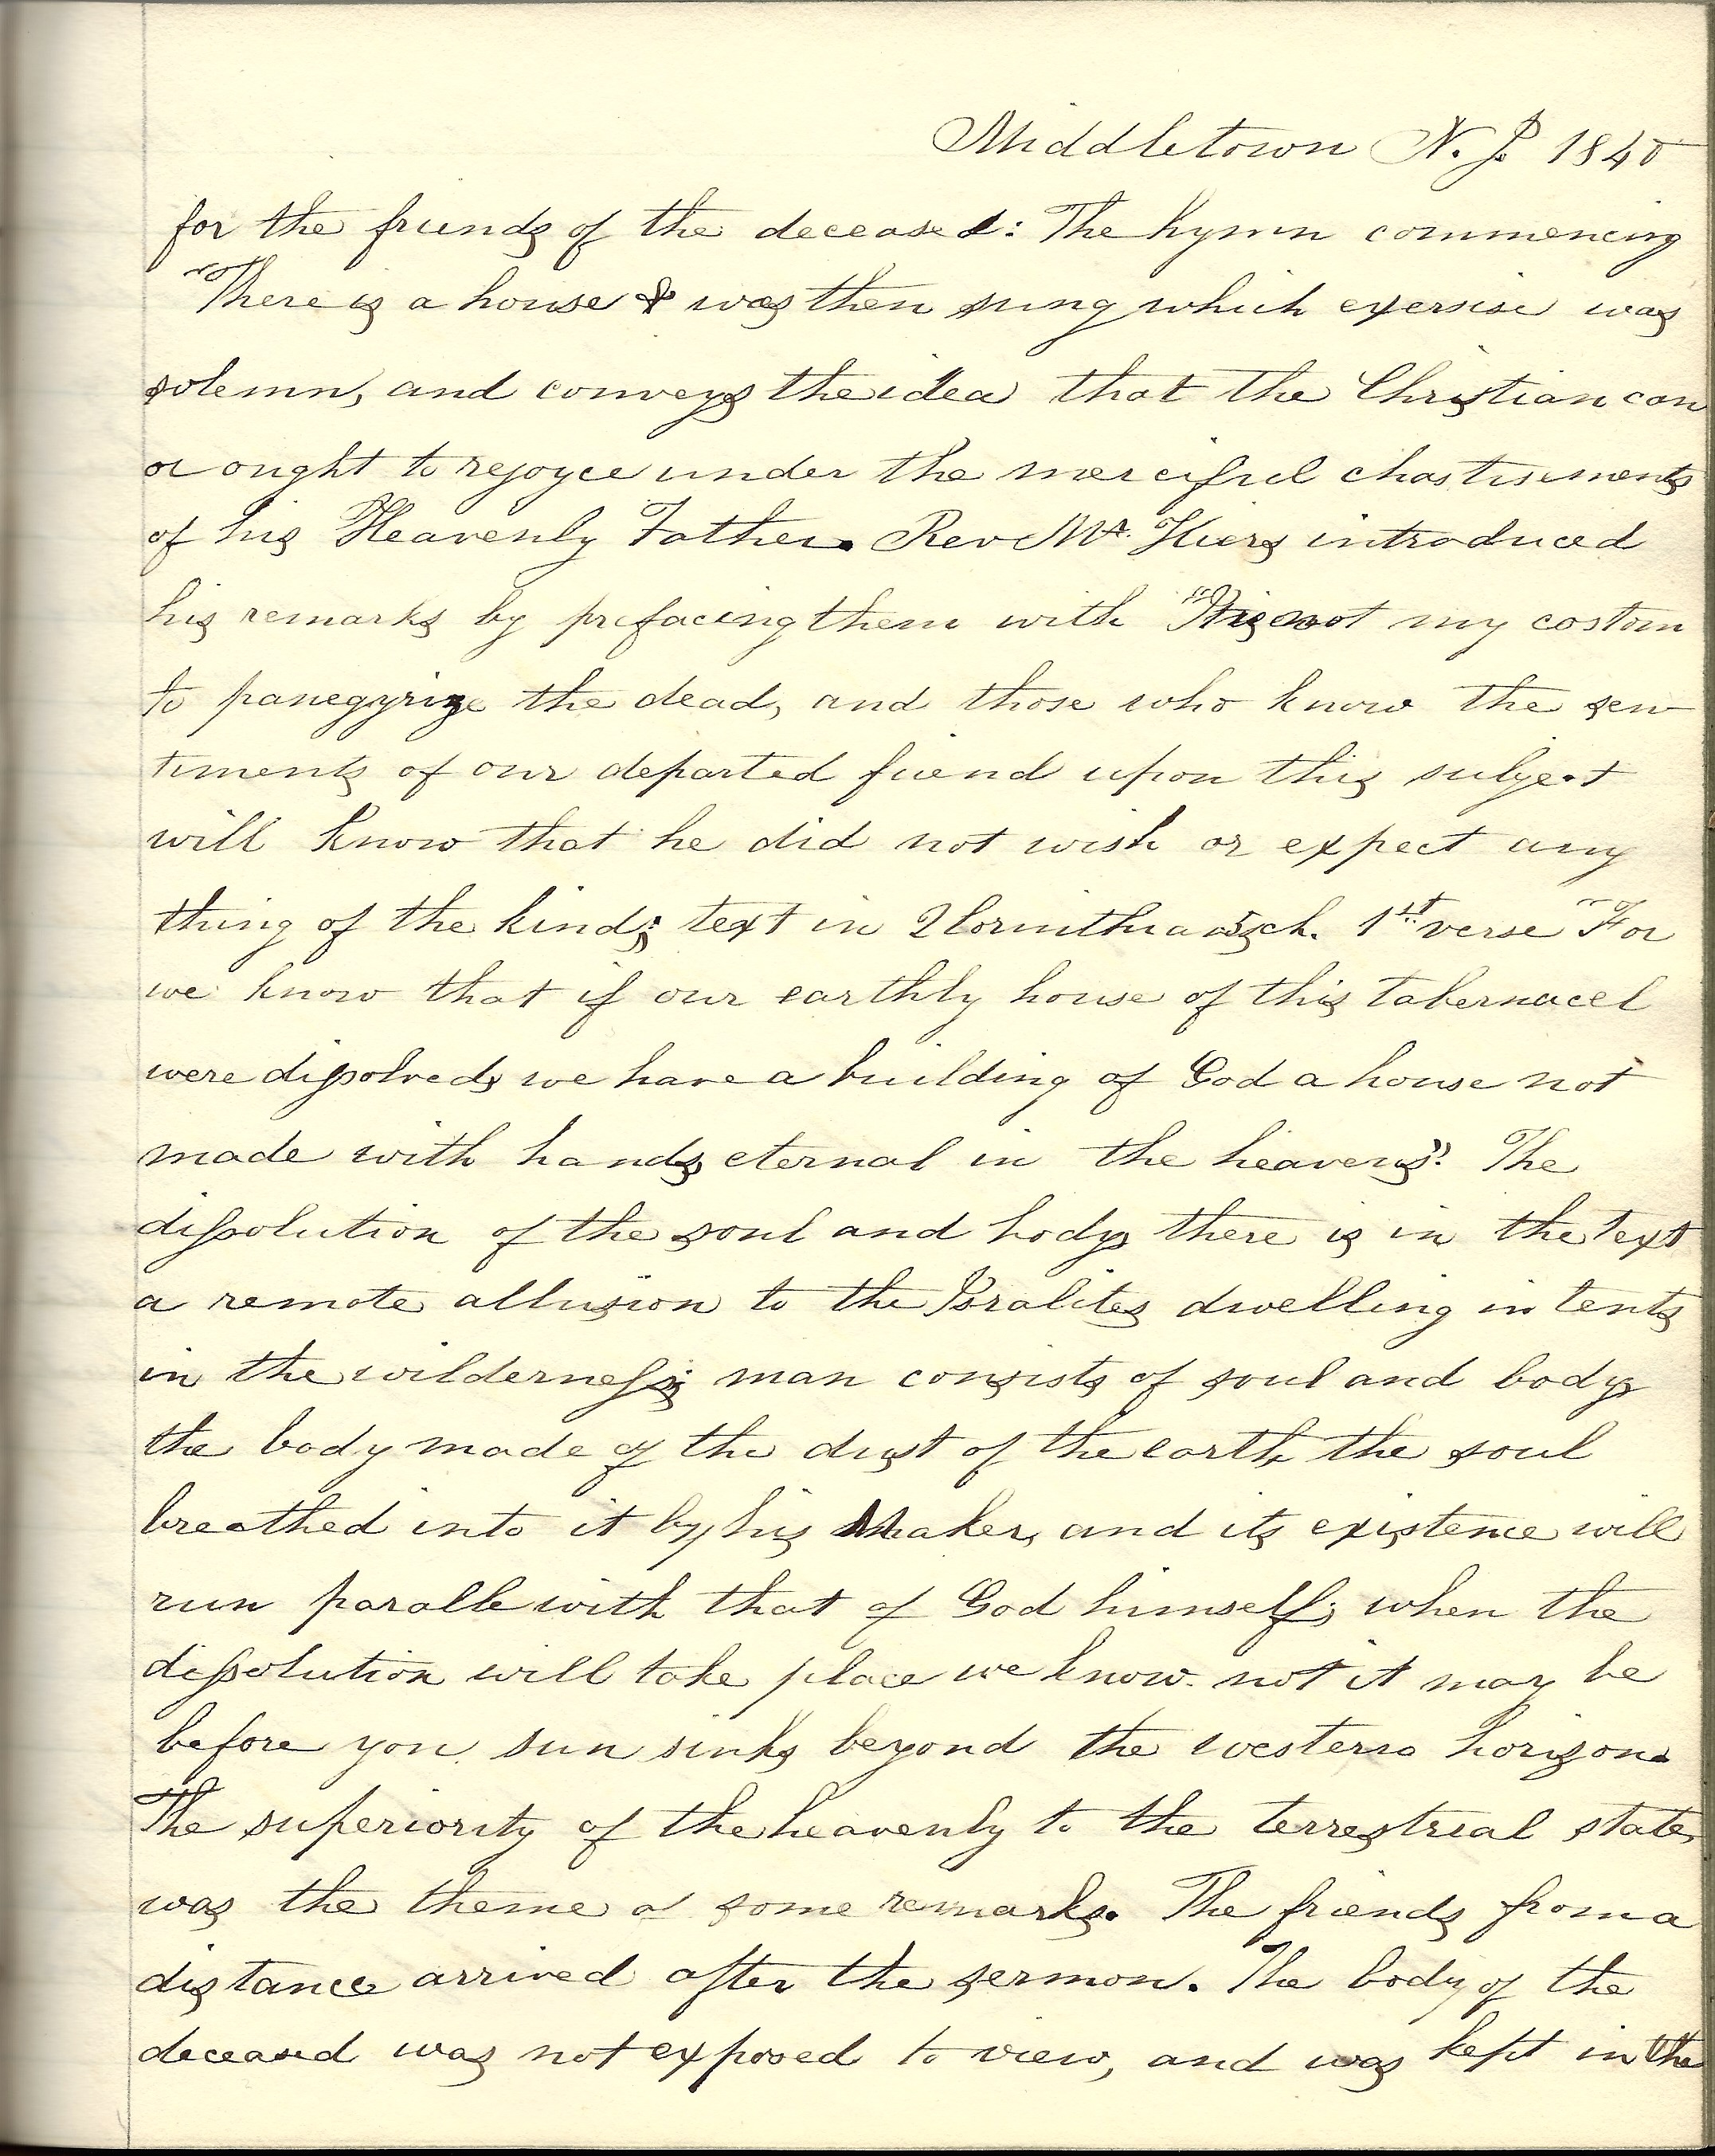 Middletown N. J. 1840
for the friends of the deceased: The hymn commencing
"There is a house & was then sung which exersise was
solemn, and conveys the idea that the Christian can
or ought to rejoyce under the merciful chastisements
of his Heavenly Father. Rev Mr. Hiers introduced
his remarks by prefacing them with "Tis not my costom
to panegyrize the dead, and those who know the sen
timents of our departed friend upon this subject
will know that he did not wish or expect any
thing of the kind; text in 2 Corinthians 5 ch. 1st verse "For
we know that if our earthly house of this tabernacel
were dissolved, we have a building of God a house not
made with hands, eternal in the heavens". The
dissolution of the soul and body, there is in the text
a remote allusion to the Isralites dwelling in tents
in the wilderness; man consists of soul and body,
the body made of the dust of the earth, the soul
breathed into it by his Maker, and its existence will
run paralle with that of God himself; when the
dissolution will take place we know not it may be
before yon sun sinks beyond the western horizon.
The superiority of the heavenly to the terrestrial state,
was the theme of some remarks. The friends from a
distance arrived after the sermon. The body of the
deceased was not exposed to view, and was kept in the